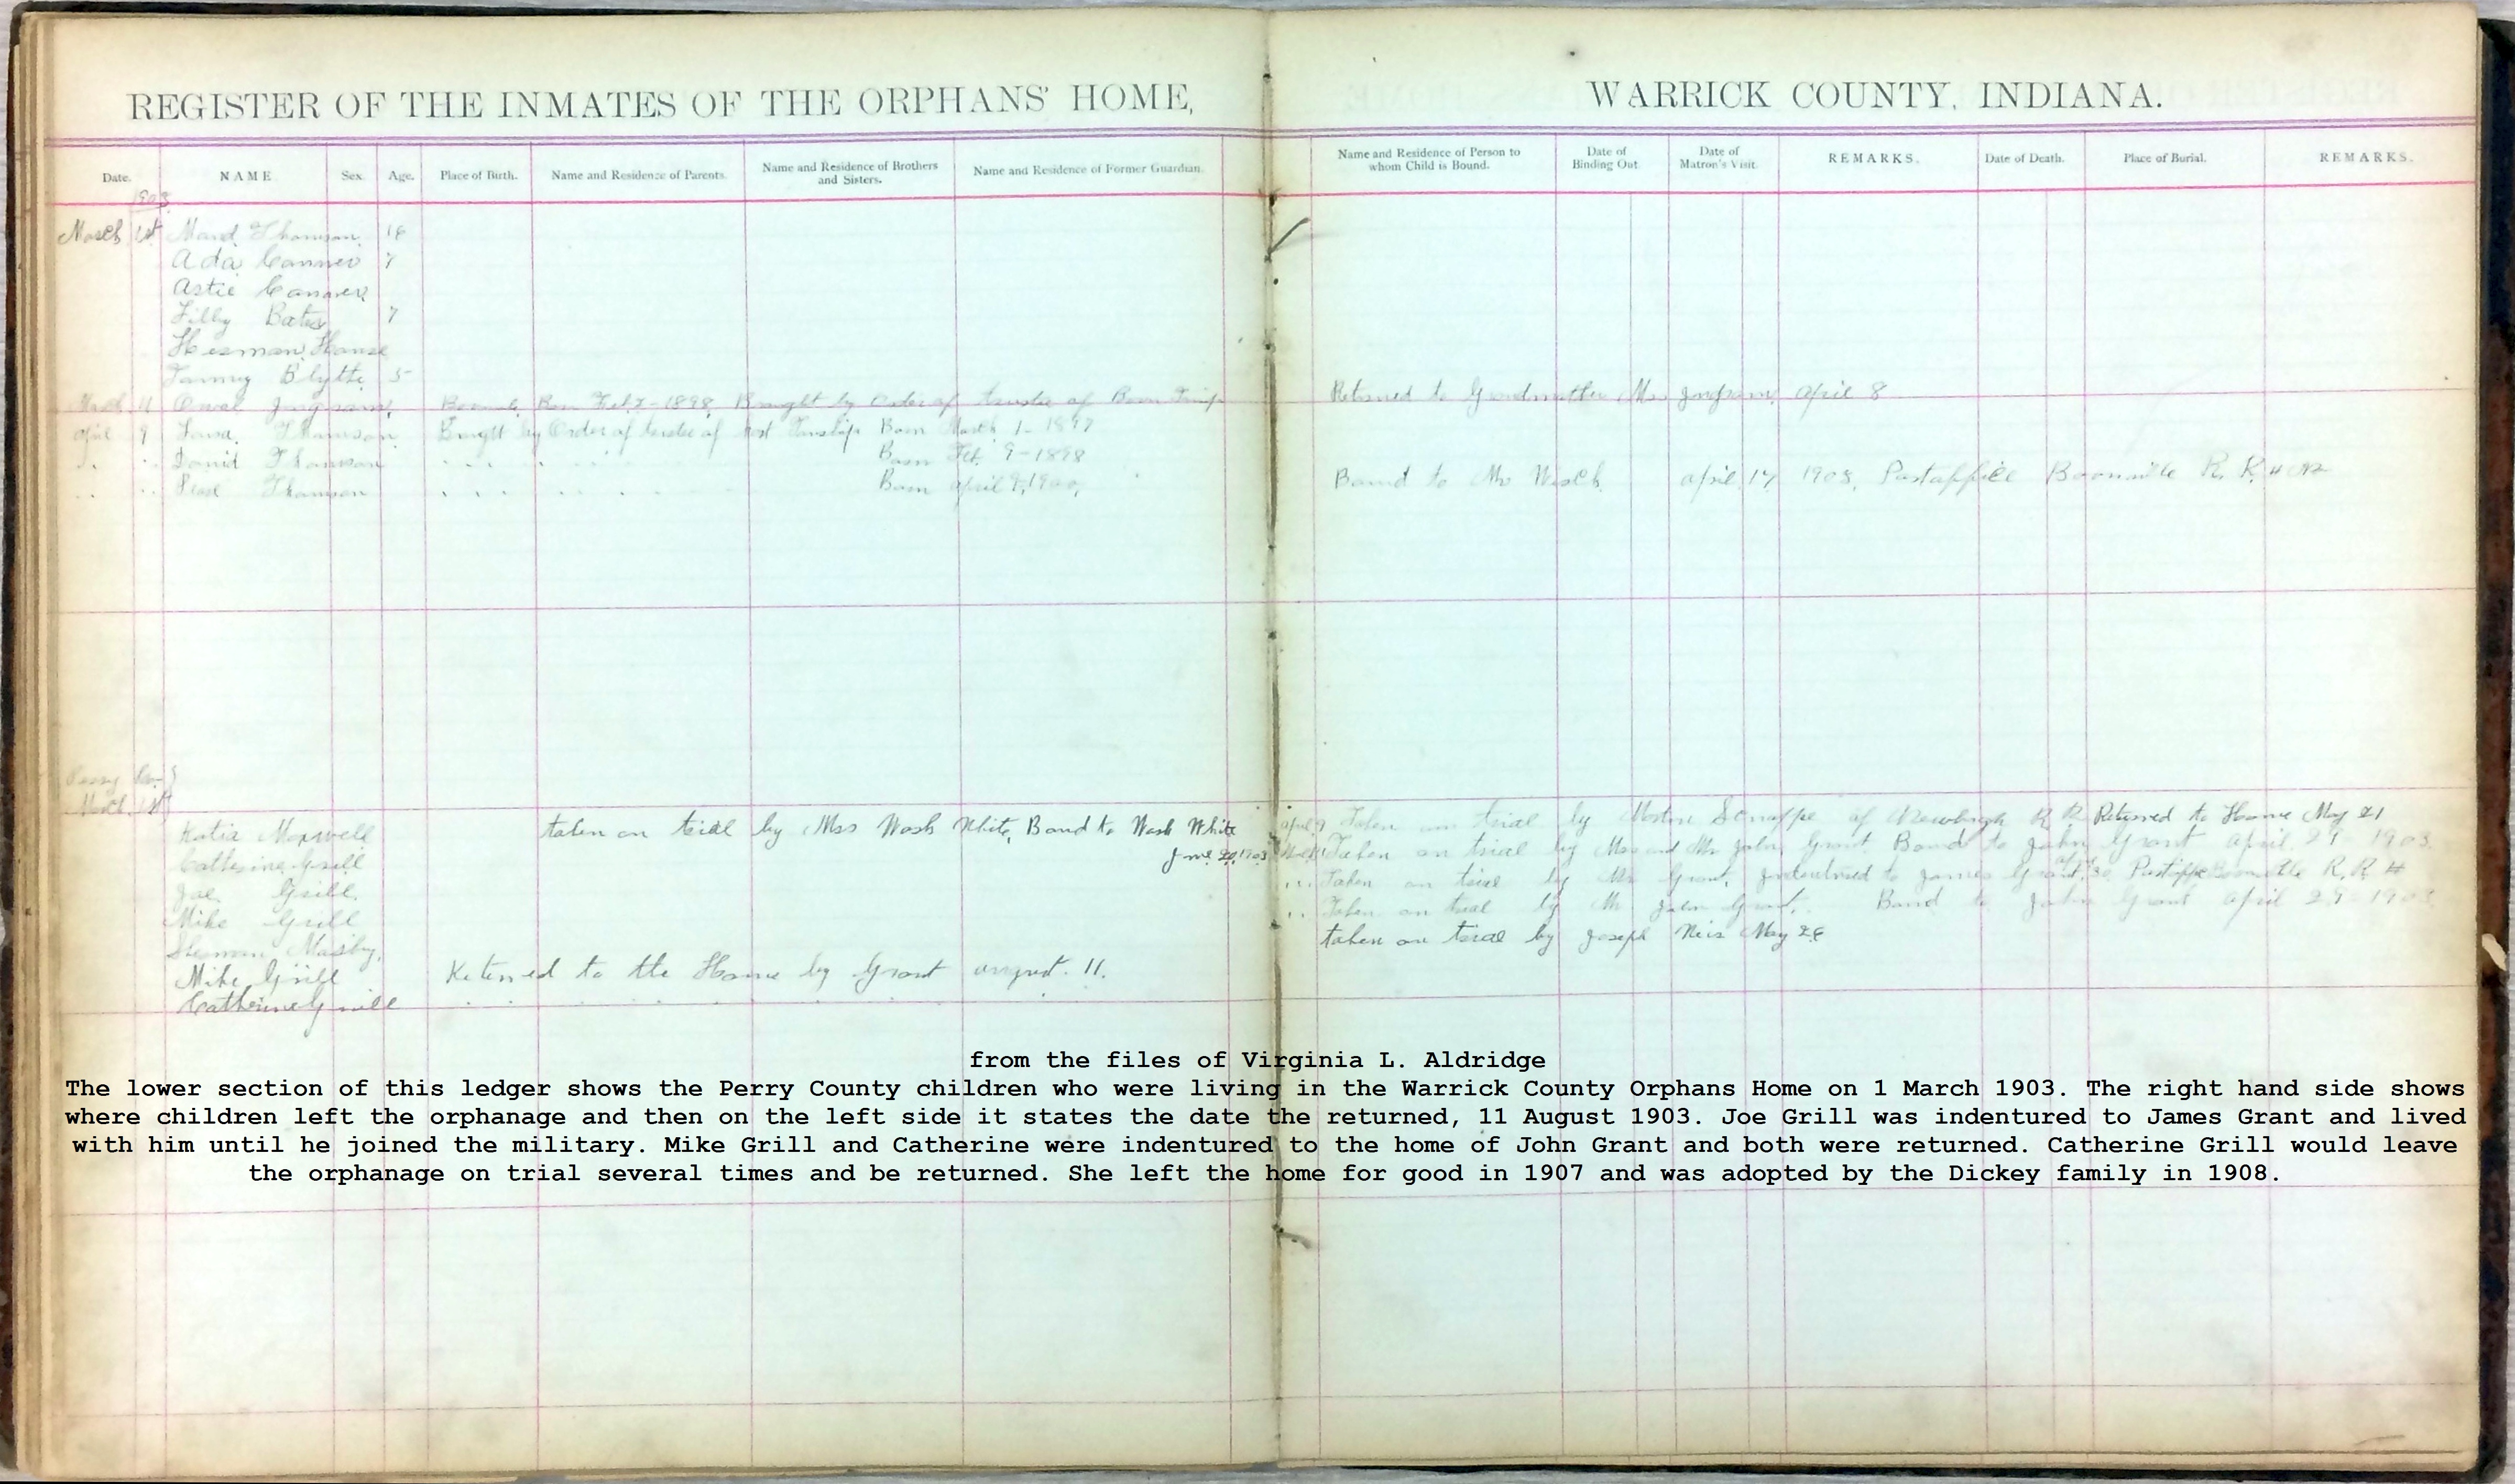 REGISTER OF THE INMATES OF THE ORPHANS' HOME, WARRICK COUNTY, INDIANA.
Date. NAME Sex. Age. Place of Birth. Name and Residence of Parents. Name and Residence of Brothers and Sisters. Name and Residence of Former Guardian. Name and Residence of Person to whom Child is Bound. Date of Binding Out. Date of Matron's Visit. REMARKS. Date of Death. Place of Burial. REMARKS.
1903
March 1st Maud Thomson 16
Ada Conner 7
Artie Conner
Lilly Bates 7
Herman House
Blythe 5
March 11 Ingram Born Feb. 1898 Brought by Order of trustee of Boon Returned to Grandmother Mrs Ingram April 8
April 9 Thomson Brought by Order of trustee of Township Born March 1-1897
David Thomson Born Feb 9-1898
Pearl Thomson Born April 9, 1900, Bound to Mr April 17 1903, Postoffice Boonville R. R. #
Perry Co
March 1st
Katie Maxwell taken on trial by Mrs Wash White, Bound to Wash White June 20 1903 April 9 Taken on trial by of Newburgh R R Returned to Home May 21
Catherine Grill Taken on trial by Mrs and Mr John Grant Bound to John Grant April 29 1903
Joe Grill Taken on trial by Mr Grant, Indentured to James Grant, Postoffice Boonville R. R. #
Mike Grill Taken on trial by Mr John Grant. Bound to John Grant April 29-1903
Herman Mosby, taken on trial by Joseph May
Mike Grill Returned to the Home by Grant august. 11.
Catherine Grill
from the files of Virginia L. Aldridge
The lower section of this ledger shows the Perry County children who were living in the Warrick County Orphans Home on 1 March 1903. The right hand side shows
where children left the orphanage and then on the left side it states the date the returned, 11 August 1903. Joe Grill was indentured to James Grant and lived
with him until he joined the military. Mike Grill and Catherine were indentured to the home of John Grant and both were returned. Catherine Grill would leave
the orphanage on trial several times and be returned. She left the home for good in 1907 and was adopted by the Dickey family in 1908.